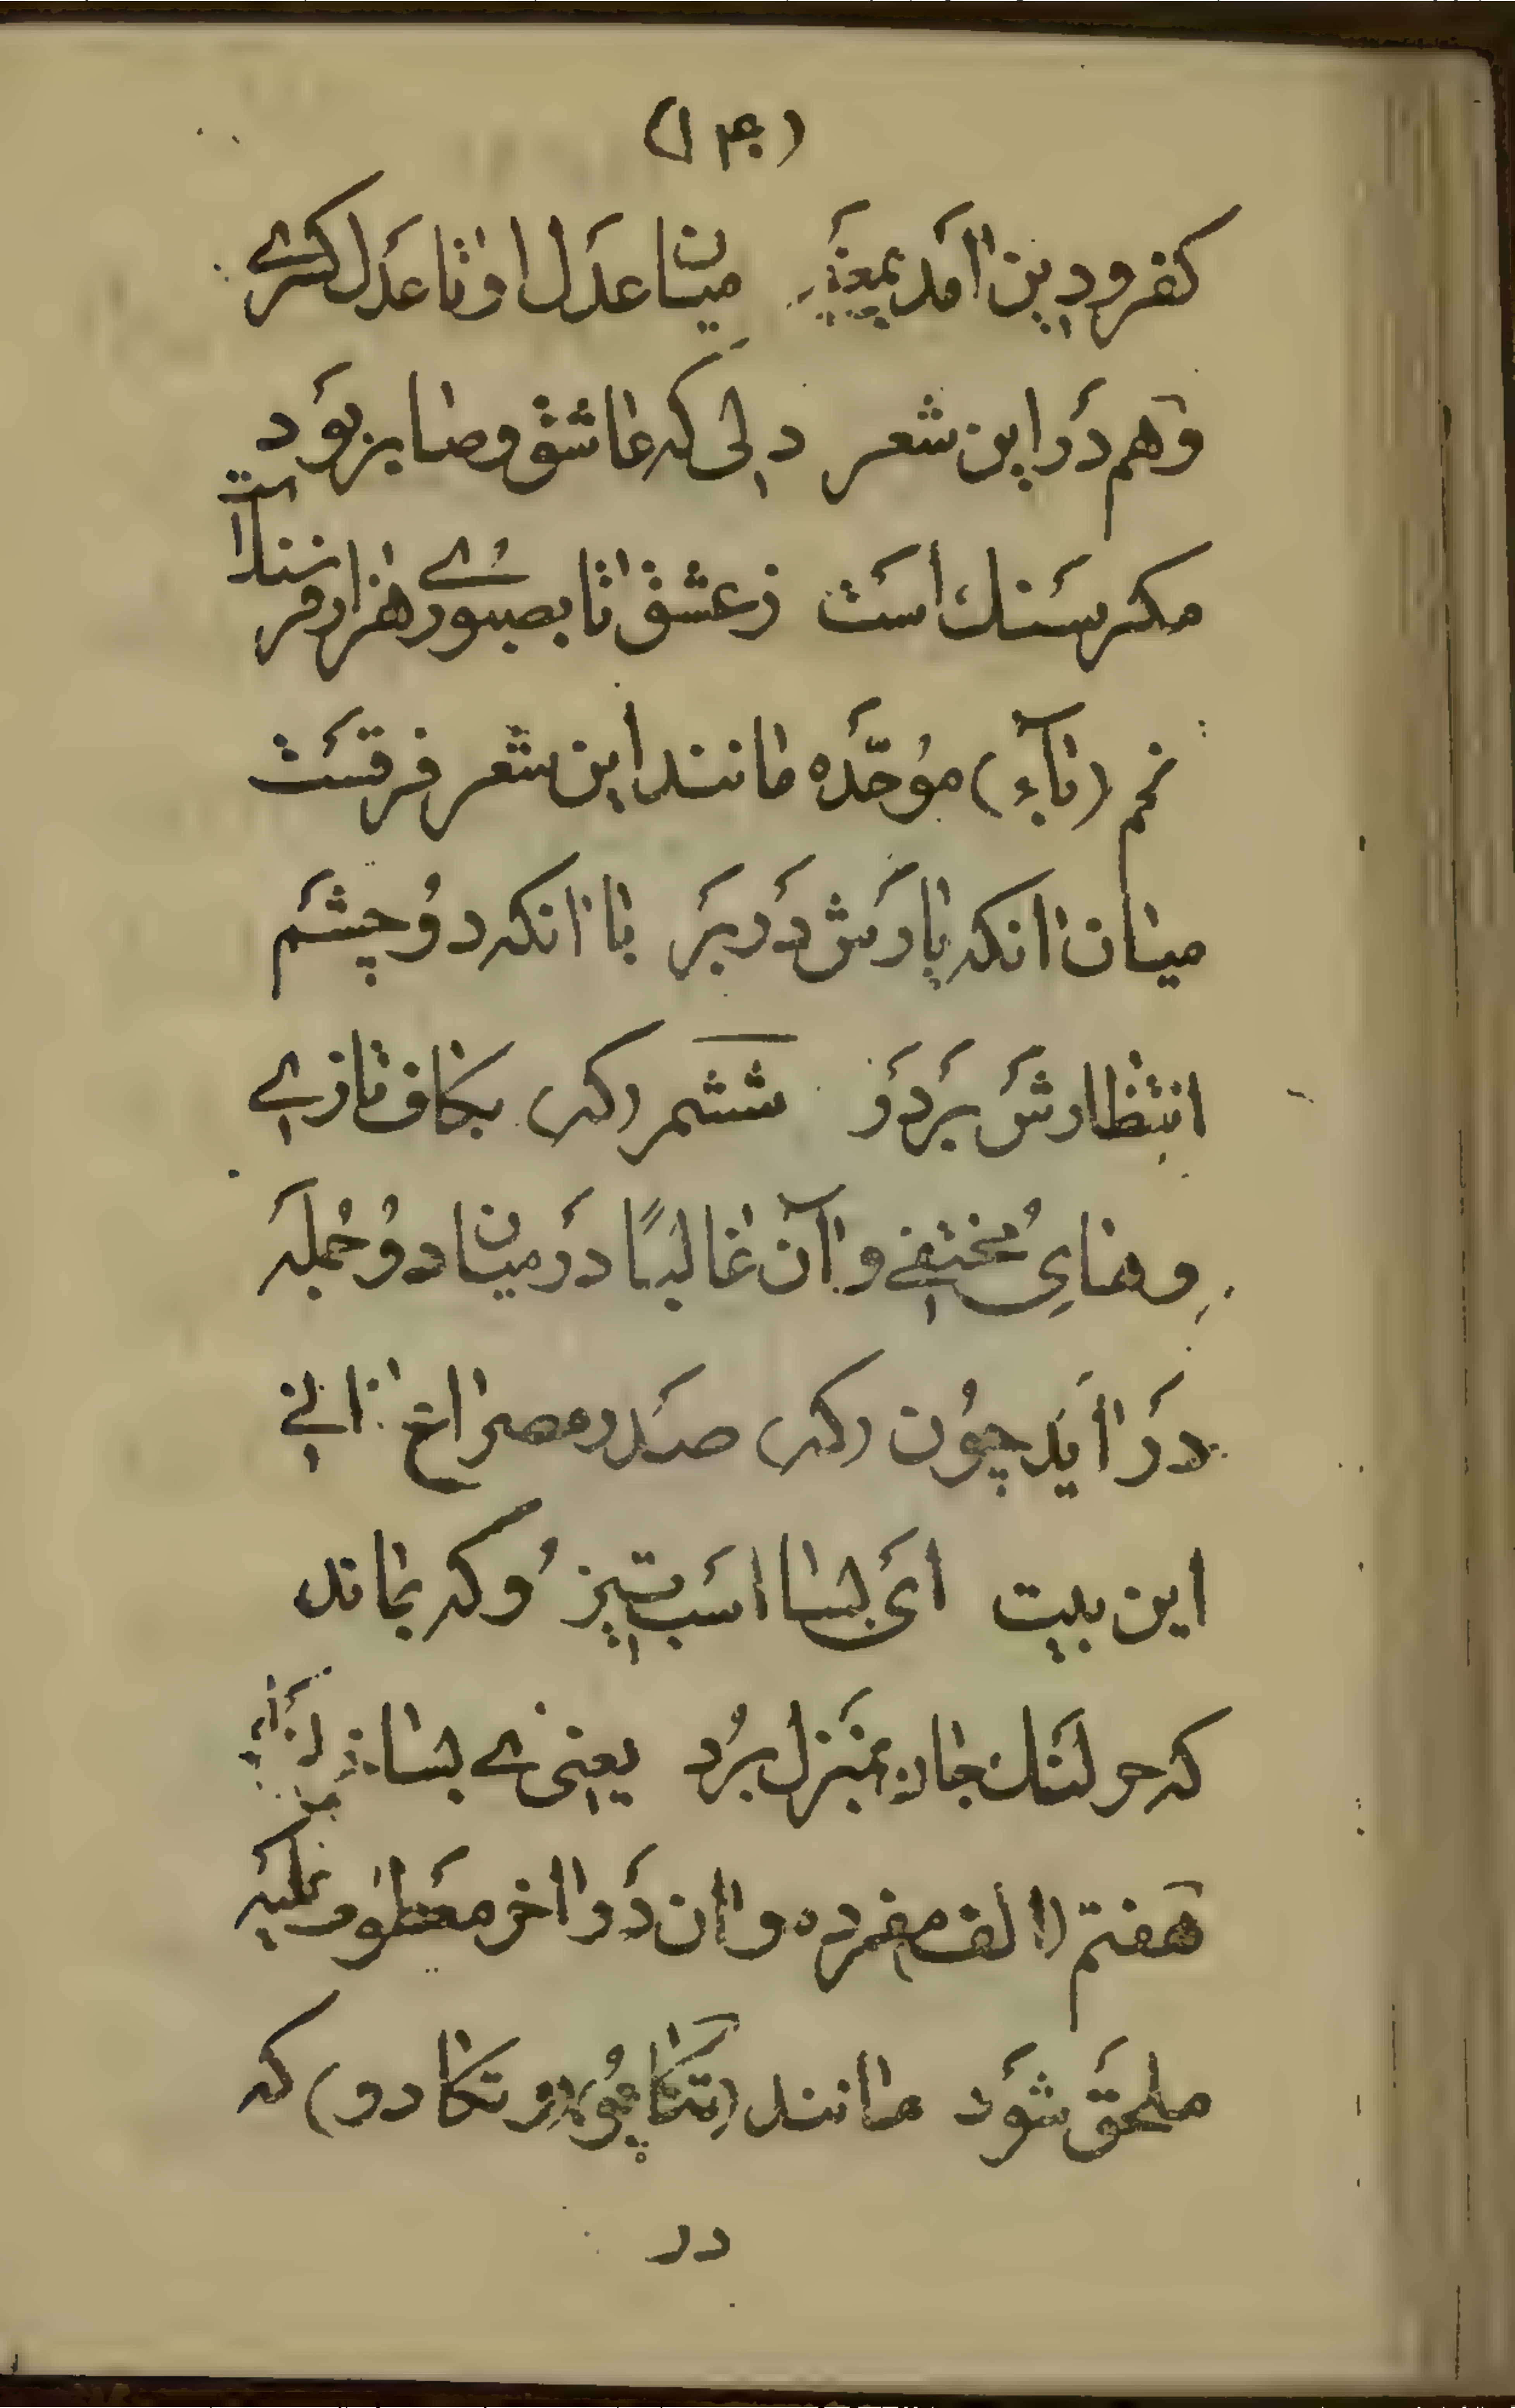 کفر و دین آمد بمعنی میان عدل او تا عدل کسری
وهم در این شعر دلی که عاشق و صابر بود
مکر سنک است ز عشق تا بصبوری هزار فرسنک است
(باء) موحّده مانند این شعر فرقست
میان آنکه یارش در بر با آنکه دو چشم
انتظارش بر در ششم (که) بکاف تازی
وهای مُختفی و آن غالبًا در میان دو جمله
در آید چون (که) صدر مصراع ثانی
این بیت ای بسا اسب تیز رو که بماند
که خر لنک جان بمنزل بُرد یعنی ای بسا
هفتم (الف مفرده) و آن در آخر معطوف علیه
ملحق شود مانند (تکاپو) و (تکادو) که
در